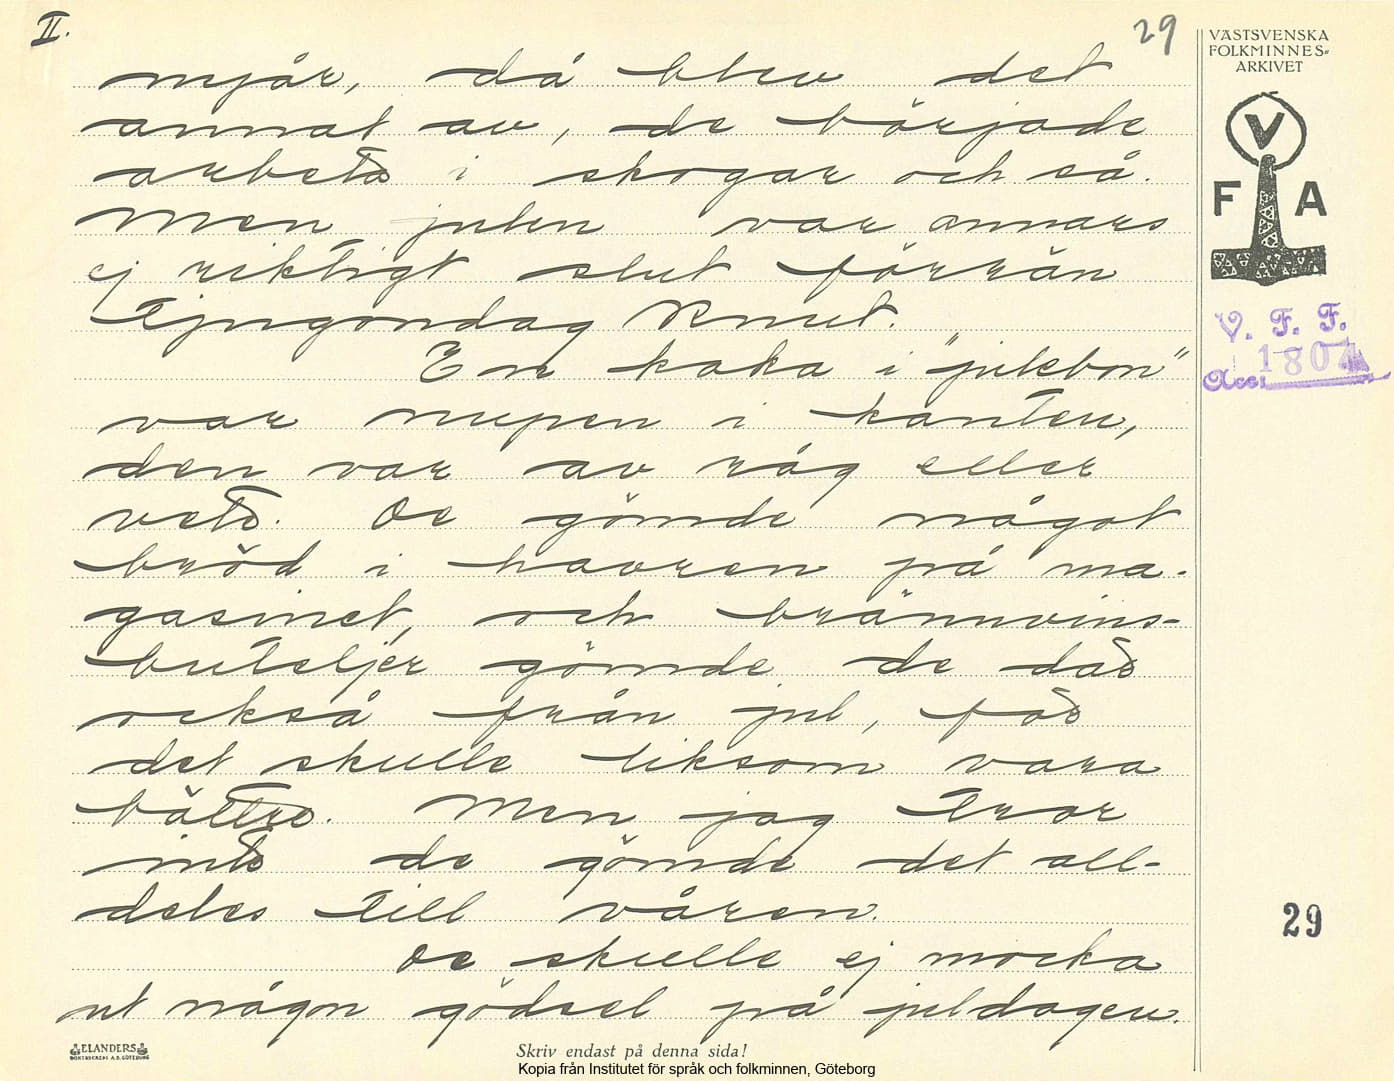 II.
29
VÄSTSVENSKA
FOLKMINNES-
ARKIVET
V
F A
V. F. F.
Acc: 1807
mjår, då blev det
annat av, de började
arbeta i skogar och så.
Men julen var annars
ej riktigt slut förrän
Tjugondag Knut.
En kaka i "julebon"
var nupen i kanten,
den var av råg eller
vete. De gömde något
bröd i havren på ma-
gasinet, och brännvins-
buteljer gömde de där
också från jul, för
det skulle liksom vara
bättre. Men jag tror
inte de gömde det all-
deles till våren.
De skulle ej mocka
ut någon gödsel på juldagen.
29
ELANDERS
BOKTRYCKERI A.B. GÖTEBORG
Skriv endast på denna sida!
Kopia från Institutet för språk och folkminnen, Göteborg